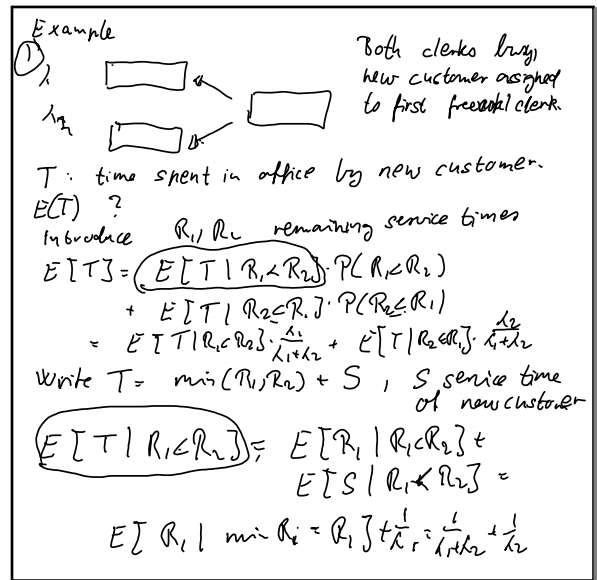 Example
① λ₁
λ₂
Both clerks busy,
new customer assigned
to first freed clerk.
T: time spent in office by new customer.
E(T) ?
Introduce R₁, R₂ remaining service times
E[T] = E[T | R₁<R₂] · P(R₁<R₂)
+ E[T | R₂≤R₁] · P(R₂≤R₁)
= E[T|R₁<R₂] · λ₁/(λ₁+λ₂) + E[T|R₂≤R₁] · λ₂/(λ₁+λ₂)
Write T = min(R₁,R₂) + S , S service time
of new customer
E[T | R₁<R₂] = E[R₁ | R₁<R₂] +
E[S | R₁<R₂] =
E[R₁ | min Rᵢ = R₁] + 1/λ₁ = 1/(λ₁+λ₂) + 1/λ₂